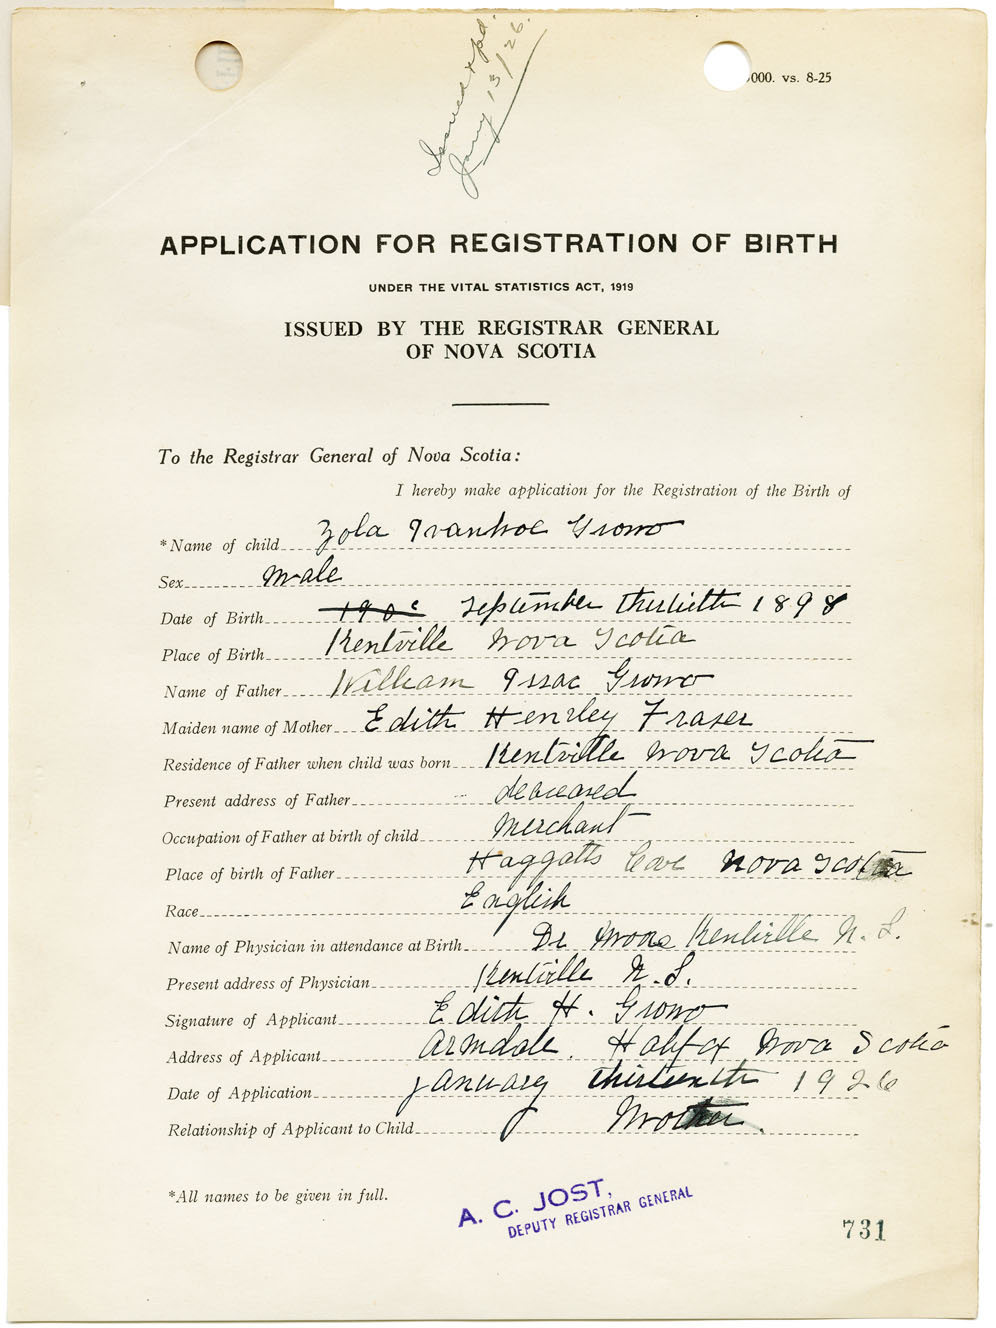 Issued & pd.
Jany 13/26.
000. vs. 8-25
APPLICATION FOR REGISTRATION OF BIRTH
UNDER THE VITAL STATISTICS ACT, 1919
ISSUED BY THE REGISTRAR GENERAL
OF NOVA SCOTIA
To the Registrar General of Nova Scotia:
I hereby make application for the Registration of the Birth of
*Name of child Zola Ivanhoe Grono
Sex Male
Date of Birth September thirtieth 1898
Place of Birth Kentville Nova Scotia
Name of Father William Issac Grono
Maiden name of Mother Edith Henrley Fraser
Residence of Father when child was born Kentville Nova Scotia
Present address of Father deaceased
Occupation of Father at birth of child Merchant
Place of birth of Father Haggatts Cove Nova Scotia
Race English
Name of Physician in attendance at Birth Dr Moore Kentville N. S.
Present address of Physician Kentville N. S.
Signature of Applicant Edith H. Grono
Address of Applicant Armdale. Halifax Nova Scotia
Date of Application January thirteenth 1926
Relationship of Applicant to Child Mother.
*All names to be given in full.
A. C. JOST,
DEPUTY REGISTRAR GENERAL
731